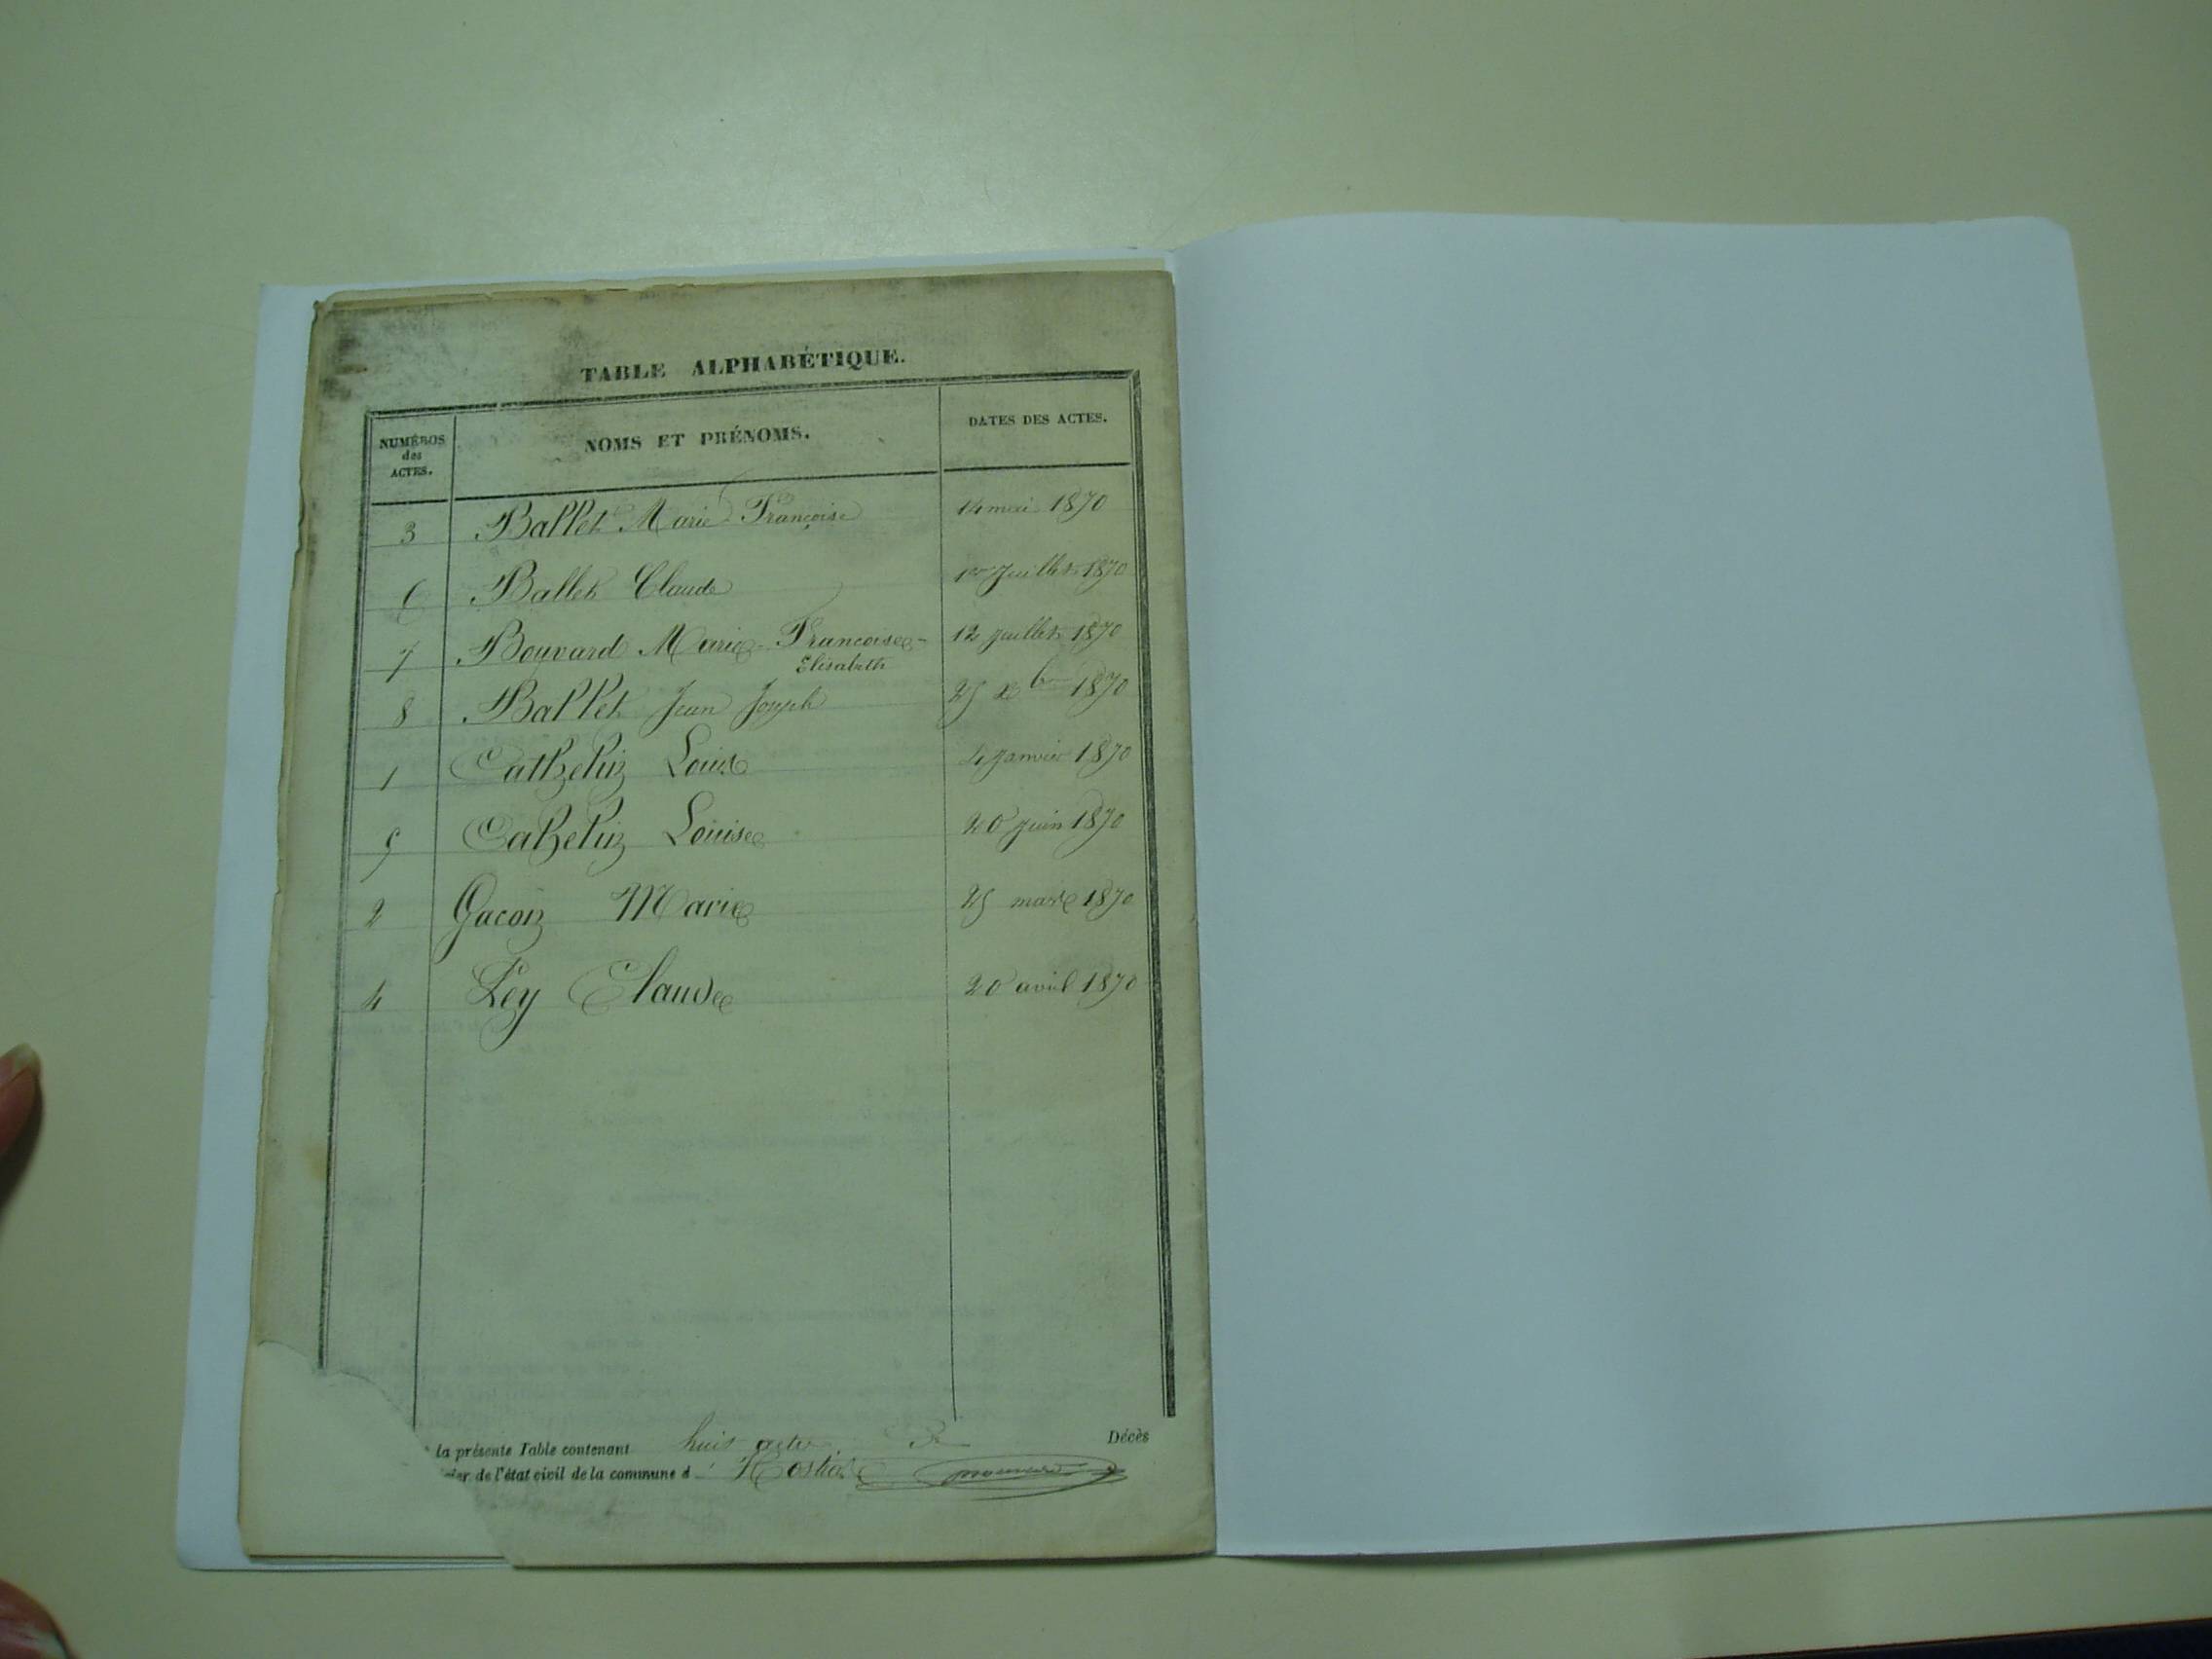 TABLE ALPHABÉTIQUE.
NUMÉROS des ACTES. NOMS ET PRÉNOMS. DATES DES ACTES.
3 Ballet Marie Françoise 14 mai 1870
6 Ballet Claude 1er Juillet 1870
7 Bouvard Marie-Francoise- 12 juillet 1870
Elisabeth
8 Ballet Jean Joseph 25 xbre 1870
1 Cathelin Louis 4 janvier 1870
5 Cathelin Louise 20 juin 1870
2 Gacon Marie 25 mars 1870
4 Rey Claude 20 avril 1870
la présente Table contenant huit actes. Décès
de l'état civil de la commune d' Hostias